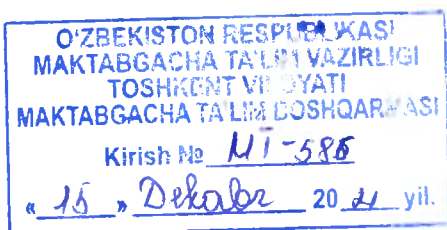 O'ZBEKISTON RESPUBLIKASI
MAKTABGACHA TA'LIM VAZIRLIGI
TOSHKENT VILOYATI
MAKTABGACHA TA'LIM BOSHQARMASI
Kirish № MT-586
« 15 » Dekabr 20 21 yil.